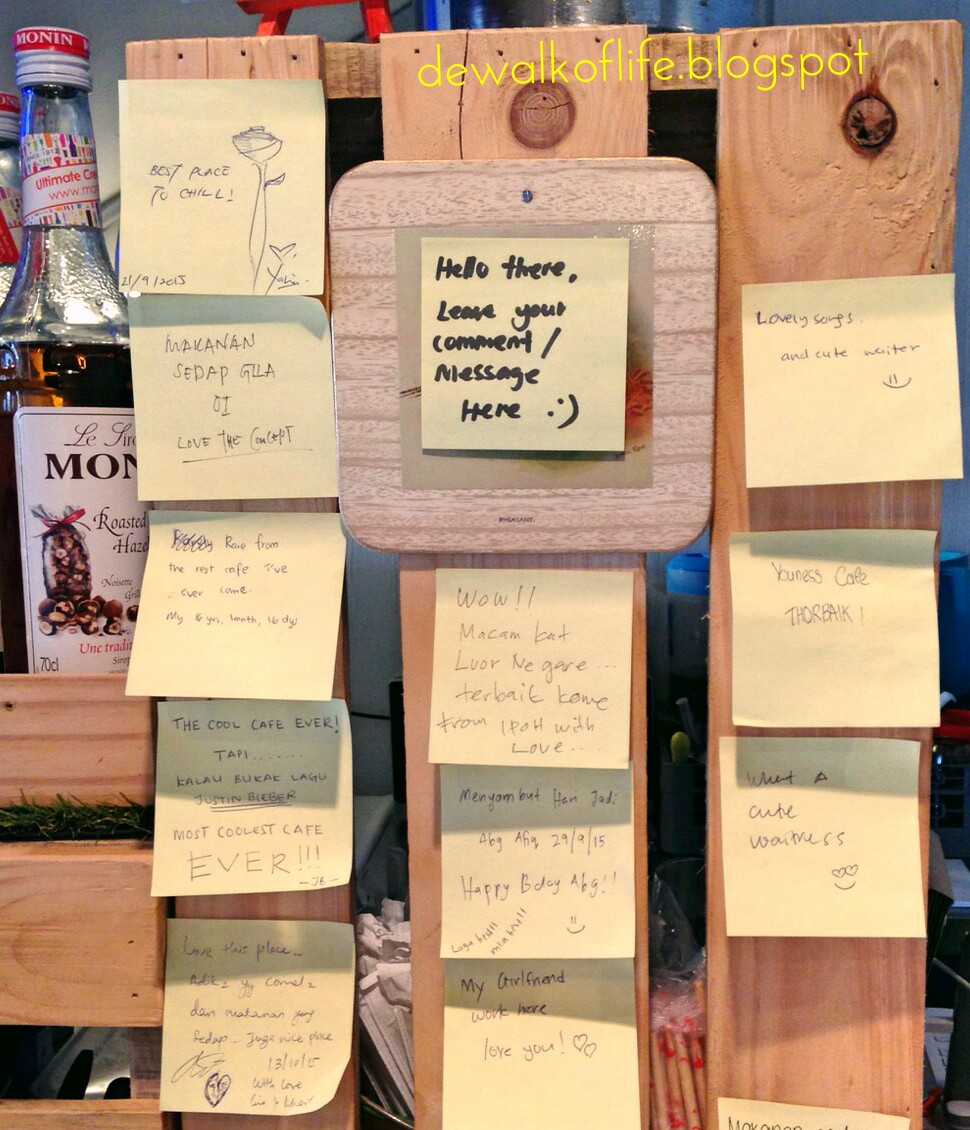 dewalkoflife.blogspot
MONIN
Ultimate Cre
www.mo
BEST PLACE
TO CHILL!
21/9/2015
MAKANAN
SEDAP GILA
LOVE THE CONCEPT
Le Siro
MON
Roasted
Haze
Noisette
Gril
Une tradit
Sirop
70cl
Rare from
the rest cafe i've
ever come.
My 16 yrs, 1mnth, 16 dys
THE COOL CAFE EVER!
TAPI.......
KALAU BUKAK LAGU
JUSTIN BIEBER
MOST COOLEST CAFE
EVER!!!
-JB-
Love this place..
Adik2 yg comel2
dan makanan yang
sedap.. Juga nice place
13/10/15
With love
Hello there,
Leave your
comment/
Message
Here :)
PHEASANT
WOW!!
Macam kat
Luor Negare...
terbaik kome
From IPOH with
Love...
Menyambut Hari Jadi
Abg Afiq 29/9/15
Happy Bday Abg!!
Lagu best!!
My Girlfriend
work here
love you!
Lovely songs.
and cute waiter
Youness Cafe
THORBAIK!
What A
cute
waitress
Makanan